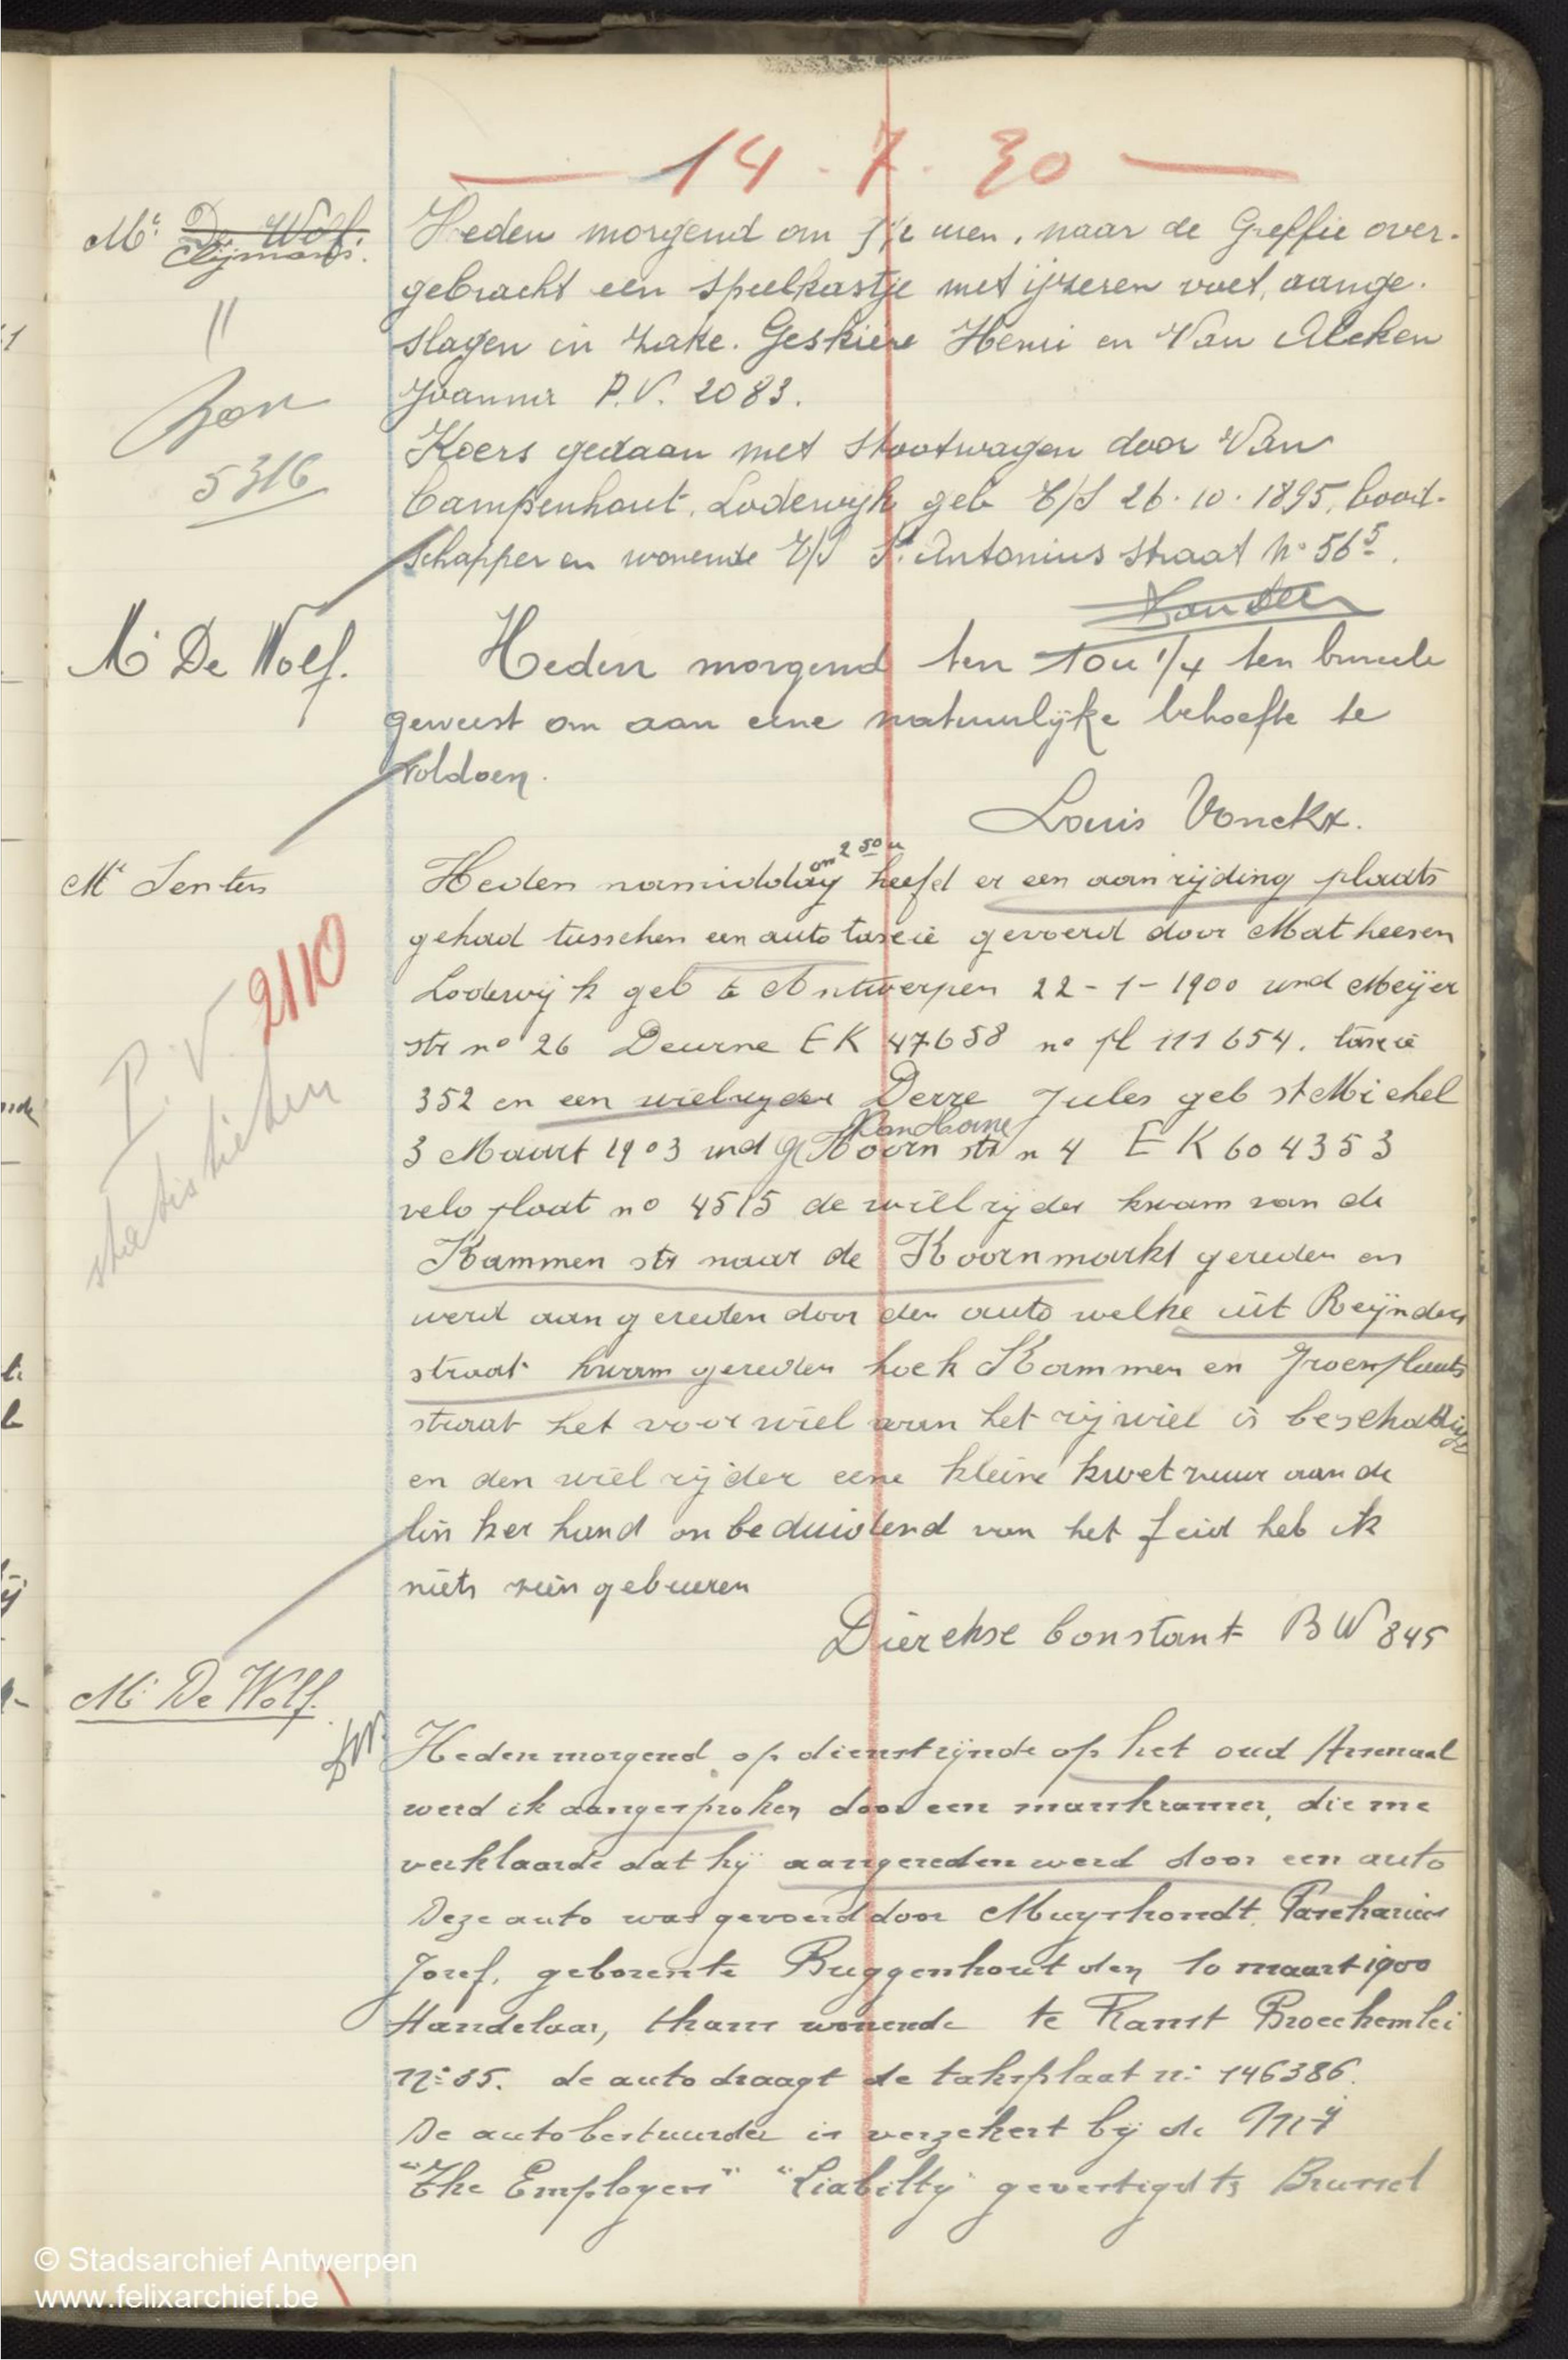 14 - 7 - 30
Mr De Wolf.
Clijmans.
"
5316
Heden morgend om uren, naar de Greffie over-
gebracht een speelkastje met ijzeren voet, aange-
slagen in zake. Geskière Henri en Van Aleken
Joanna P.V. 2083.
Koers gedaan met stootwagen door Van
Campenhout, Lodewijk geb E/S 26.10.1895, bood-
schapper en wonende E/S St Antonius straat No 56 5.
Mr De Wolf.
Heden morgend ten 10u 1/4 ten bureele
geweest om aan eene natuurlijke behoefte te
voldoen.
Louis Vonckx.
Mr Senten
P.V. 2110
statistieken
om 2 50 u
Heden namiddag heefd er een aanrijding plaats
gehad tusschen een auto taxcie gevoerd door Matheesen
Lodewijk geb te Antwerpen 22-1-1900 wnd Meÿer
str no 26 Deurne EK 47658 no pl 111654. taxcie
352 en een wielryder Derre Jules geb st Michel
Van Hoorne
3 Maart 1903 wnd Hoorn str n 4 EK 604353
velo plaat no 4515 de wielrijder kwam van de
Kammen str naar de Koornmarkt gereden en
werd aangereden door den auto welke uit Reÿnders
straat kwam gereden hoek Kammen en Groenplaats
straat het voorwiel aan het rijwiel is beschadigt
en den wielrijder eene kleine kwetzuur aan de
linker hand onbeduidend van het feid heb ik
niets zien gebeuren
Dierckse Constant BW 845
Mr De Wolf.
Heden morgend op dienst zijnde op het oud Arsenaal
werd ik aangesproken door een marskramer, die me
verklaarde dat hij aangereden werd door een auto
Deze auto was gevoerd door Muyshondt, Paschasius
Josef, geboren te Buggenhout den 10 maart 1900
Handelaar, thans wonende te Ranst Broechemlei
No 35. de auto draagt de taksplaat no 146386.
De autobestuurder is verzekert bij de Mij
"The Employers" "Liabilty" gevestigd te Brussel
© Stadsarchief Antwerpen
www.felixarchief.be